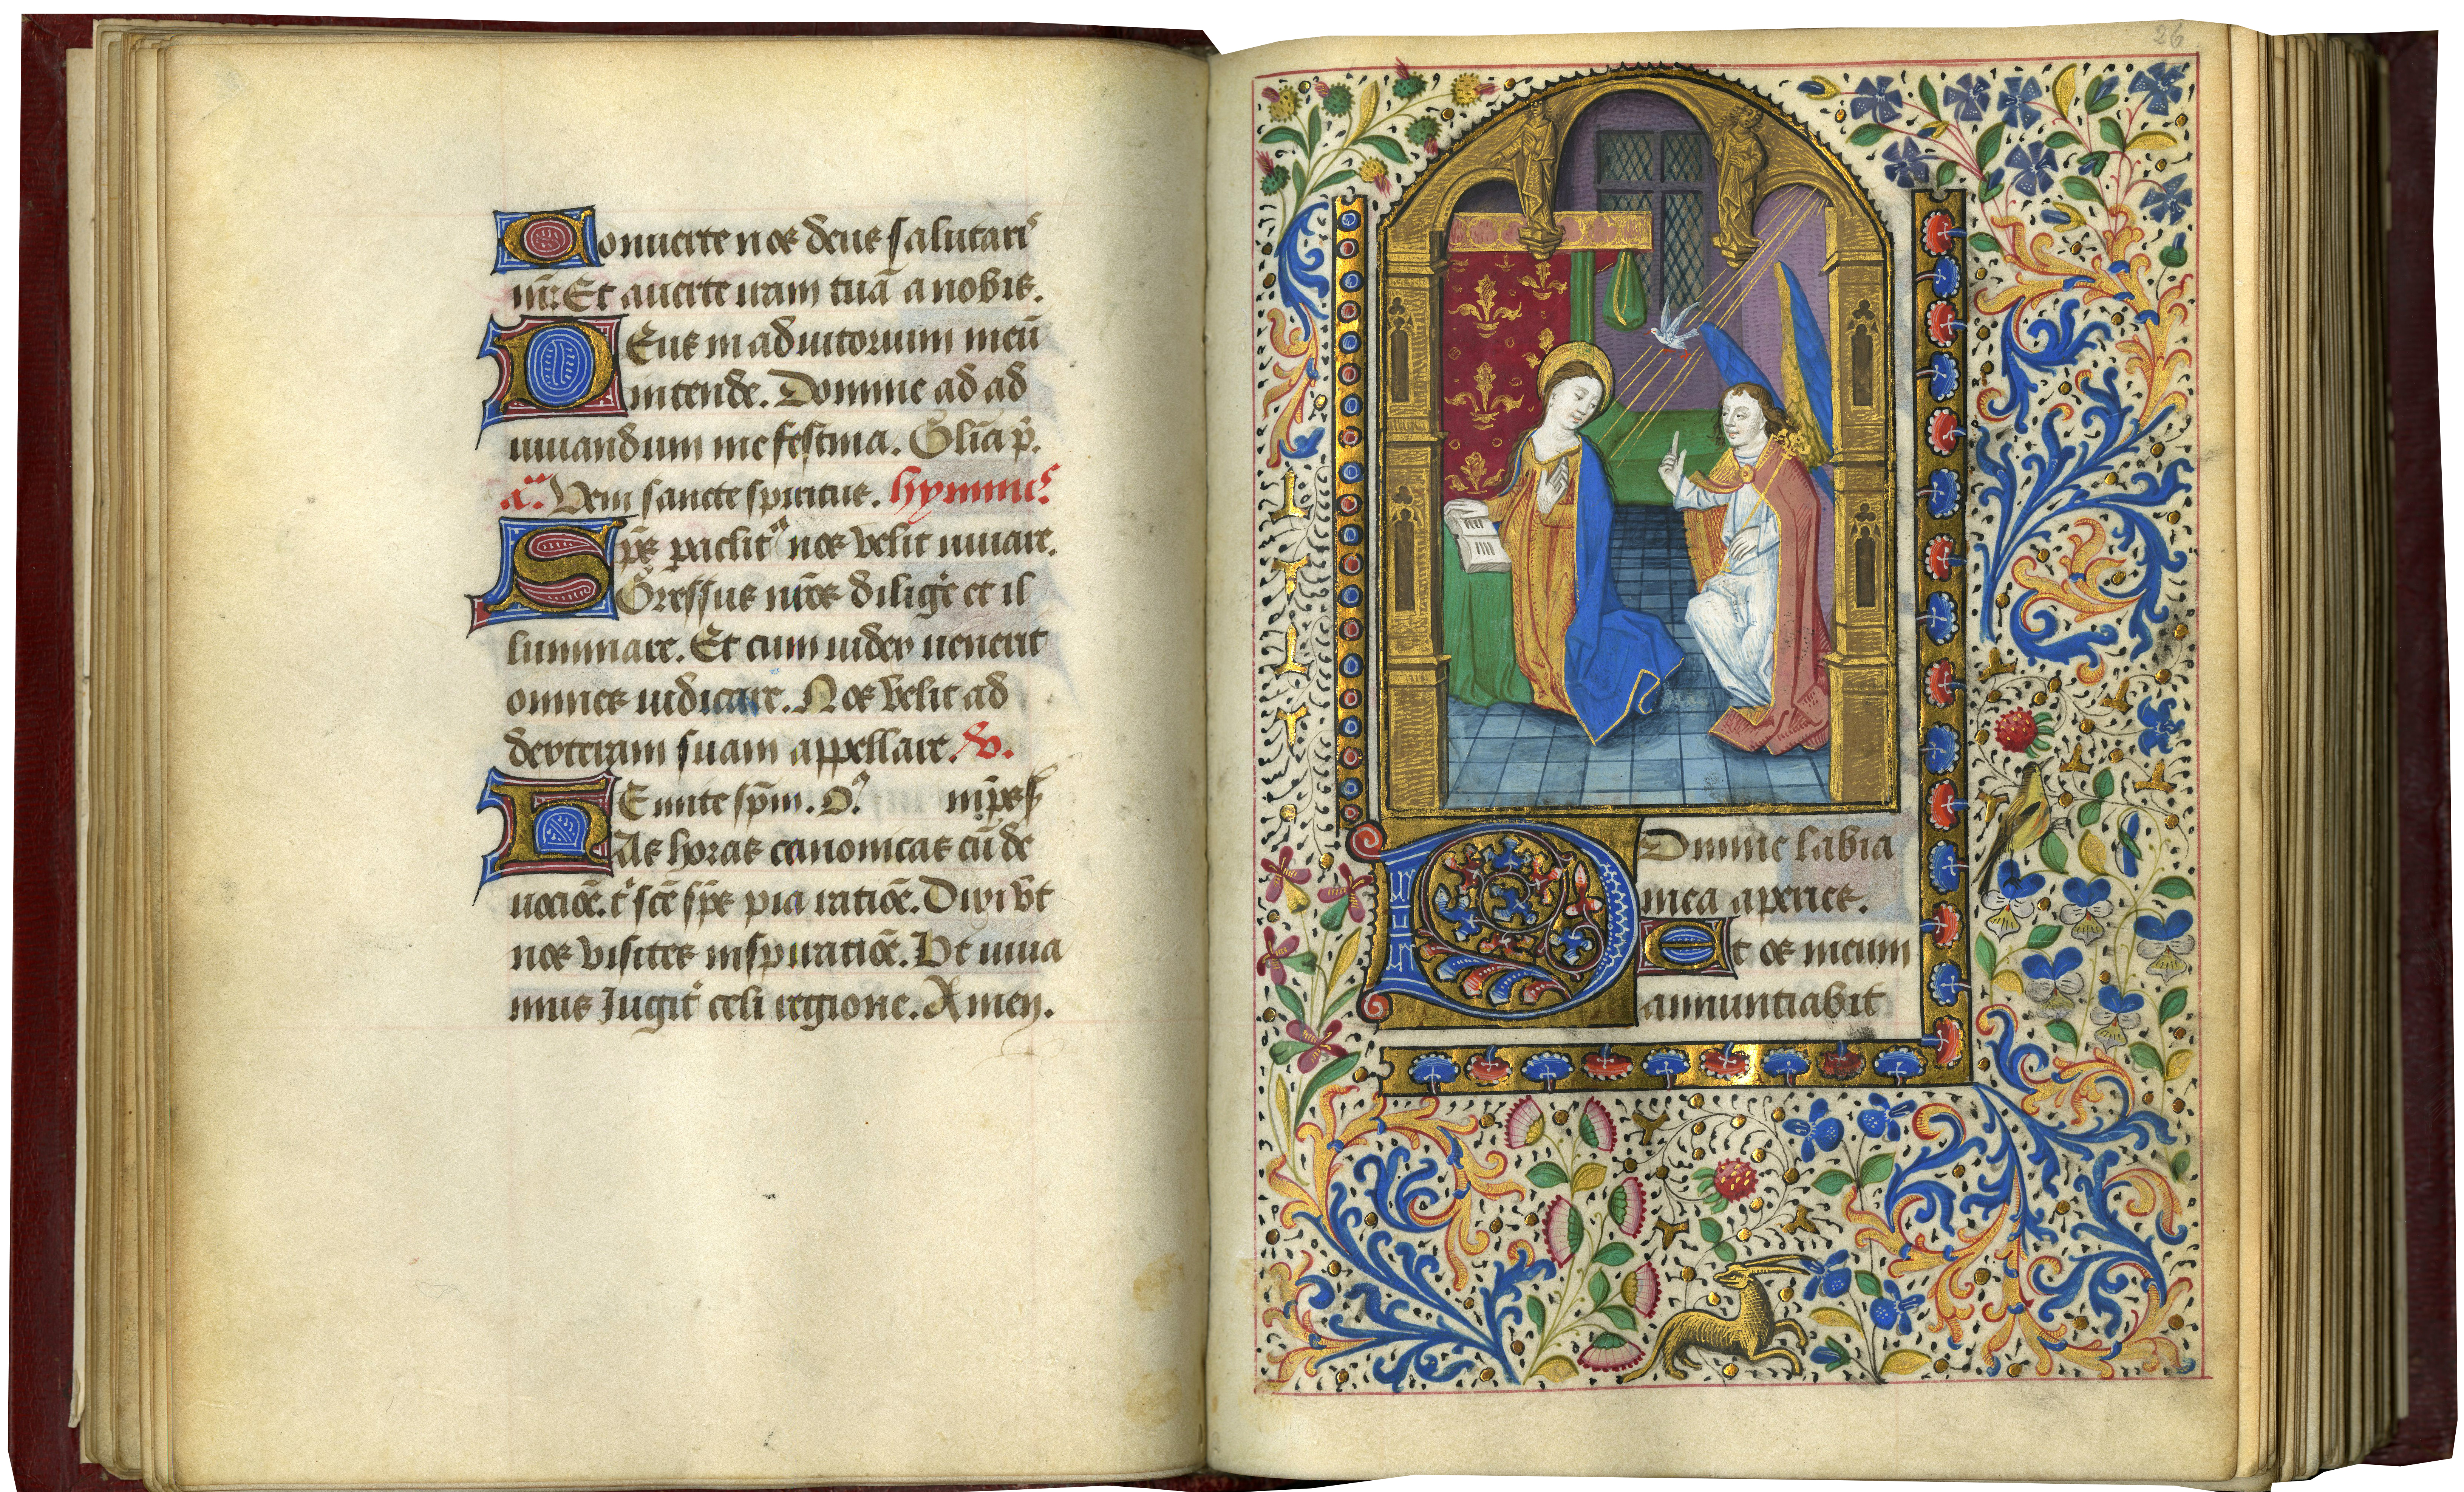 Conuerte nos deus salutaris
nr̄: Et auerte iram tuā a nobis.
Deus in adiutorium meū
intende. Domine ad ad
iuuandum me festina. Glīa p̄.
a. Veni sancte spiritus. hymnus
Sp̄s paclit9 nos velit iuuare.
Gressus nr̄os dilige et il
luminare. Et cum iudex uenerit
omnes iudicare. Nos velit ad
dexteram suam appellare. v.
Emitte sp̄m. O. īp̄es
Has horas canonicas cū de
uociōe. t' scē sp̄s pia ratiōe. Dixi vt
nos visites inspiratiōe. Vt viua
mus Iugit' celi regione. Amen.
26
Domine labia
mea aperies.
Et os meum
annuntiabit